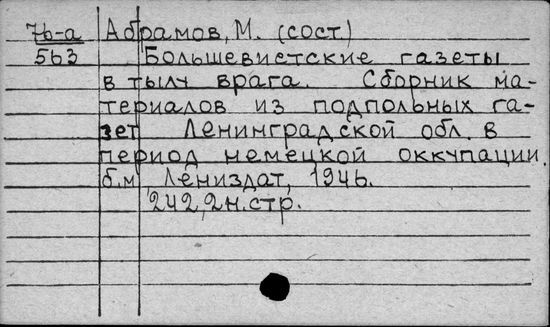 76-а Абрамов, М. (сост)
563 Большевистские газеты
в тылу врага. Сборник ма-
териалов из подпольных га-
зет Ленинградской обл. в
период немецкой оккупации.
б.м, Лениздат, 1946.
242, 2н.стр.